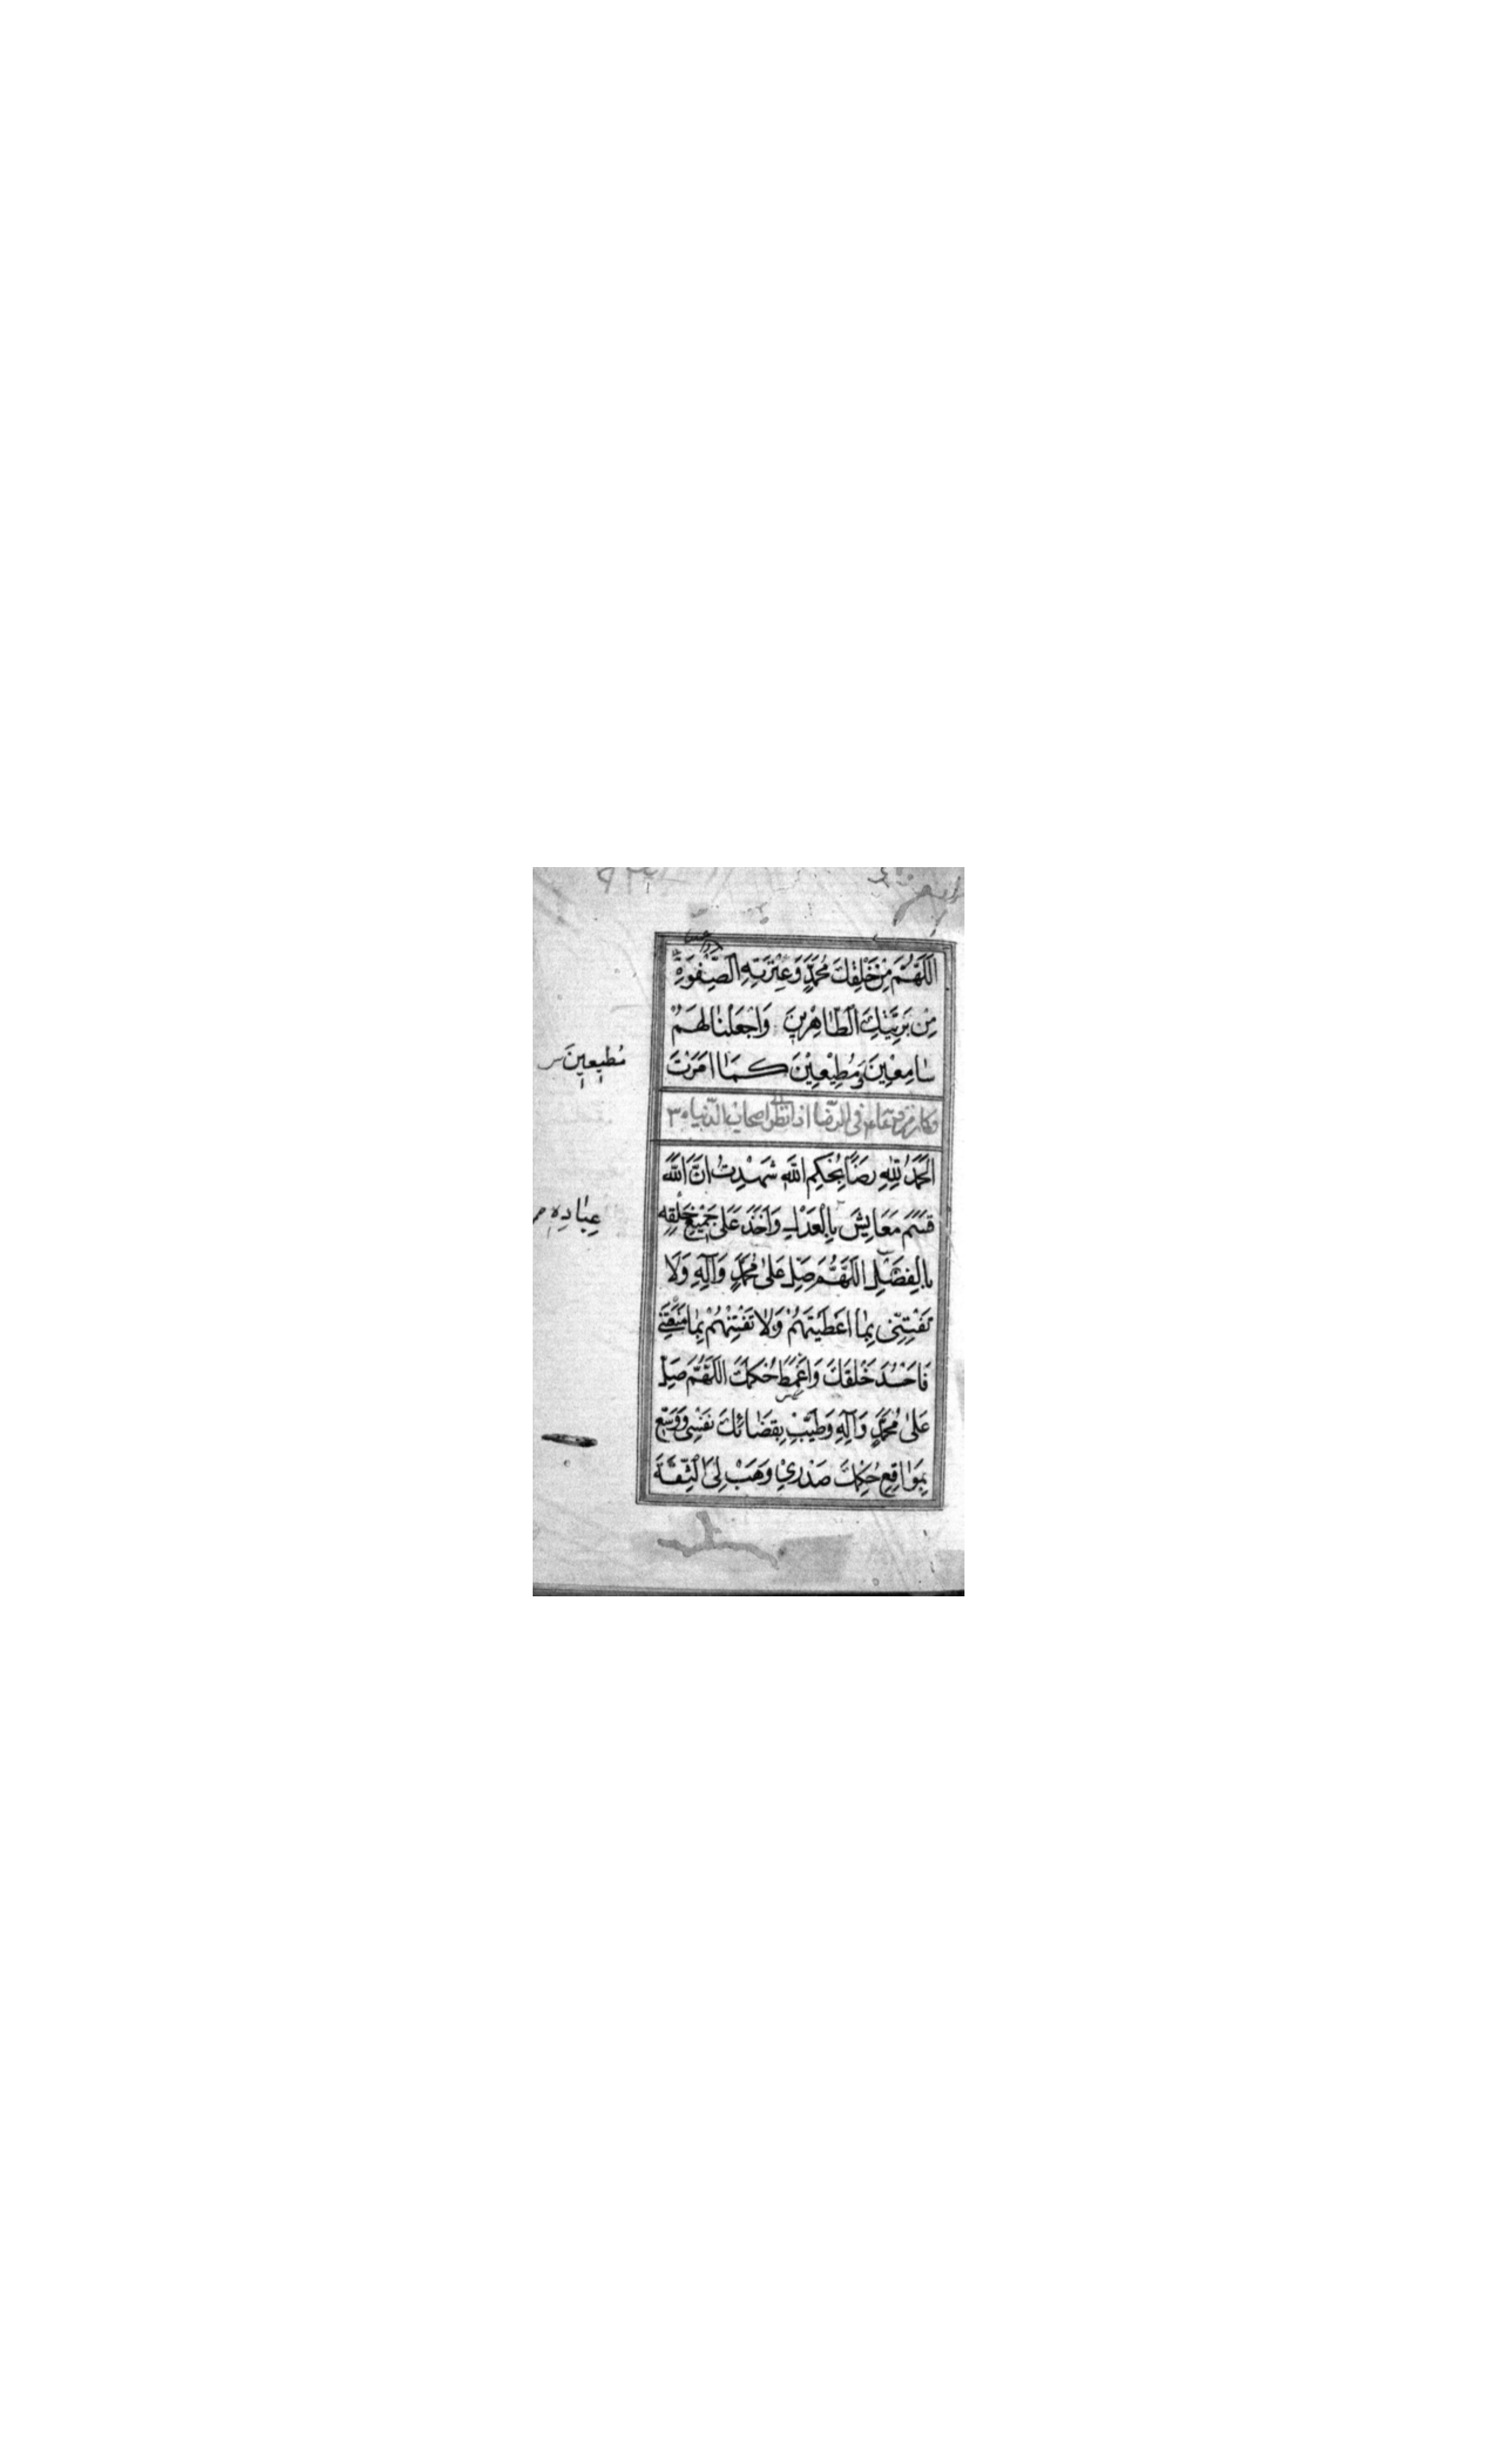 اَللّٰهُمَّ مِنْ خَلْقِكَ مُحَمَّدٍ وَعِتْرَتِهِ الصِّفْوَةِ
مِنْ بَرِيَّتِكَ الطَّاهِرِينَ وَاجْعَلْنَا لَهُمْ
سَامِعِينَ وَمُطِيعِينَ كَمَا اَمَرْتَ
مُطيعينَ س
وكان من دعائه فى الرضا اذا نظر الى اصحاب الدنيا
اَلْحَمْدُ لِلّٰهِ رِضًا بِحُكْمِ اللّٰهِ شَهِدْتُ اَنَّ اللّٰهَ
قَسَمَ مَعَايِشَ بِالْعَدْلِ وَاَخَذَ عَلَى جَمِيعِ خَلْقِهِ
عِبَادِهِ
بِالْفَضْلِ اَللّٰهُمَّ صَلِّ عَلىٰ مُحَمَّدٍ وَآلِهِ وَلَا
تَفْتِنِّى بِمَا اَعْطَيْتَهُمْ وَلَا تَفْتِنْهُمْ بِمَا مَنَعْتَنِى
فَاَحْسُدَ خَلْقَكَ وَاَغْمِطَ حُكْمَكَ اَللّٰهُمَّ صَلِّ
عَلىٰ مُحَمَّدٍ وَآلِهِ وَطَيِّبْ بِقَضَائِكَ نَفْسِى وَوَسِّعْ
بِمَوَاقِعِ حُكْمِكَ صَدْرِي وَهَبْ لِىَ الثِّقَةَ